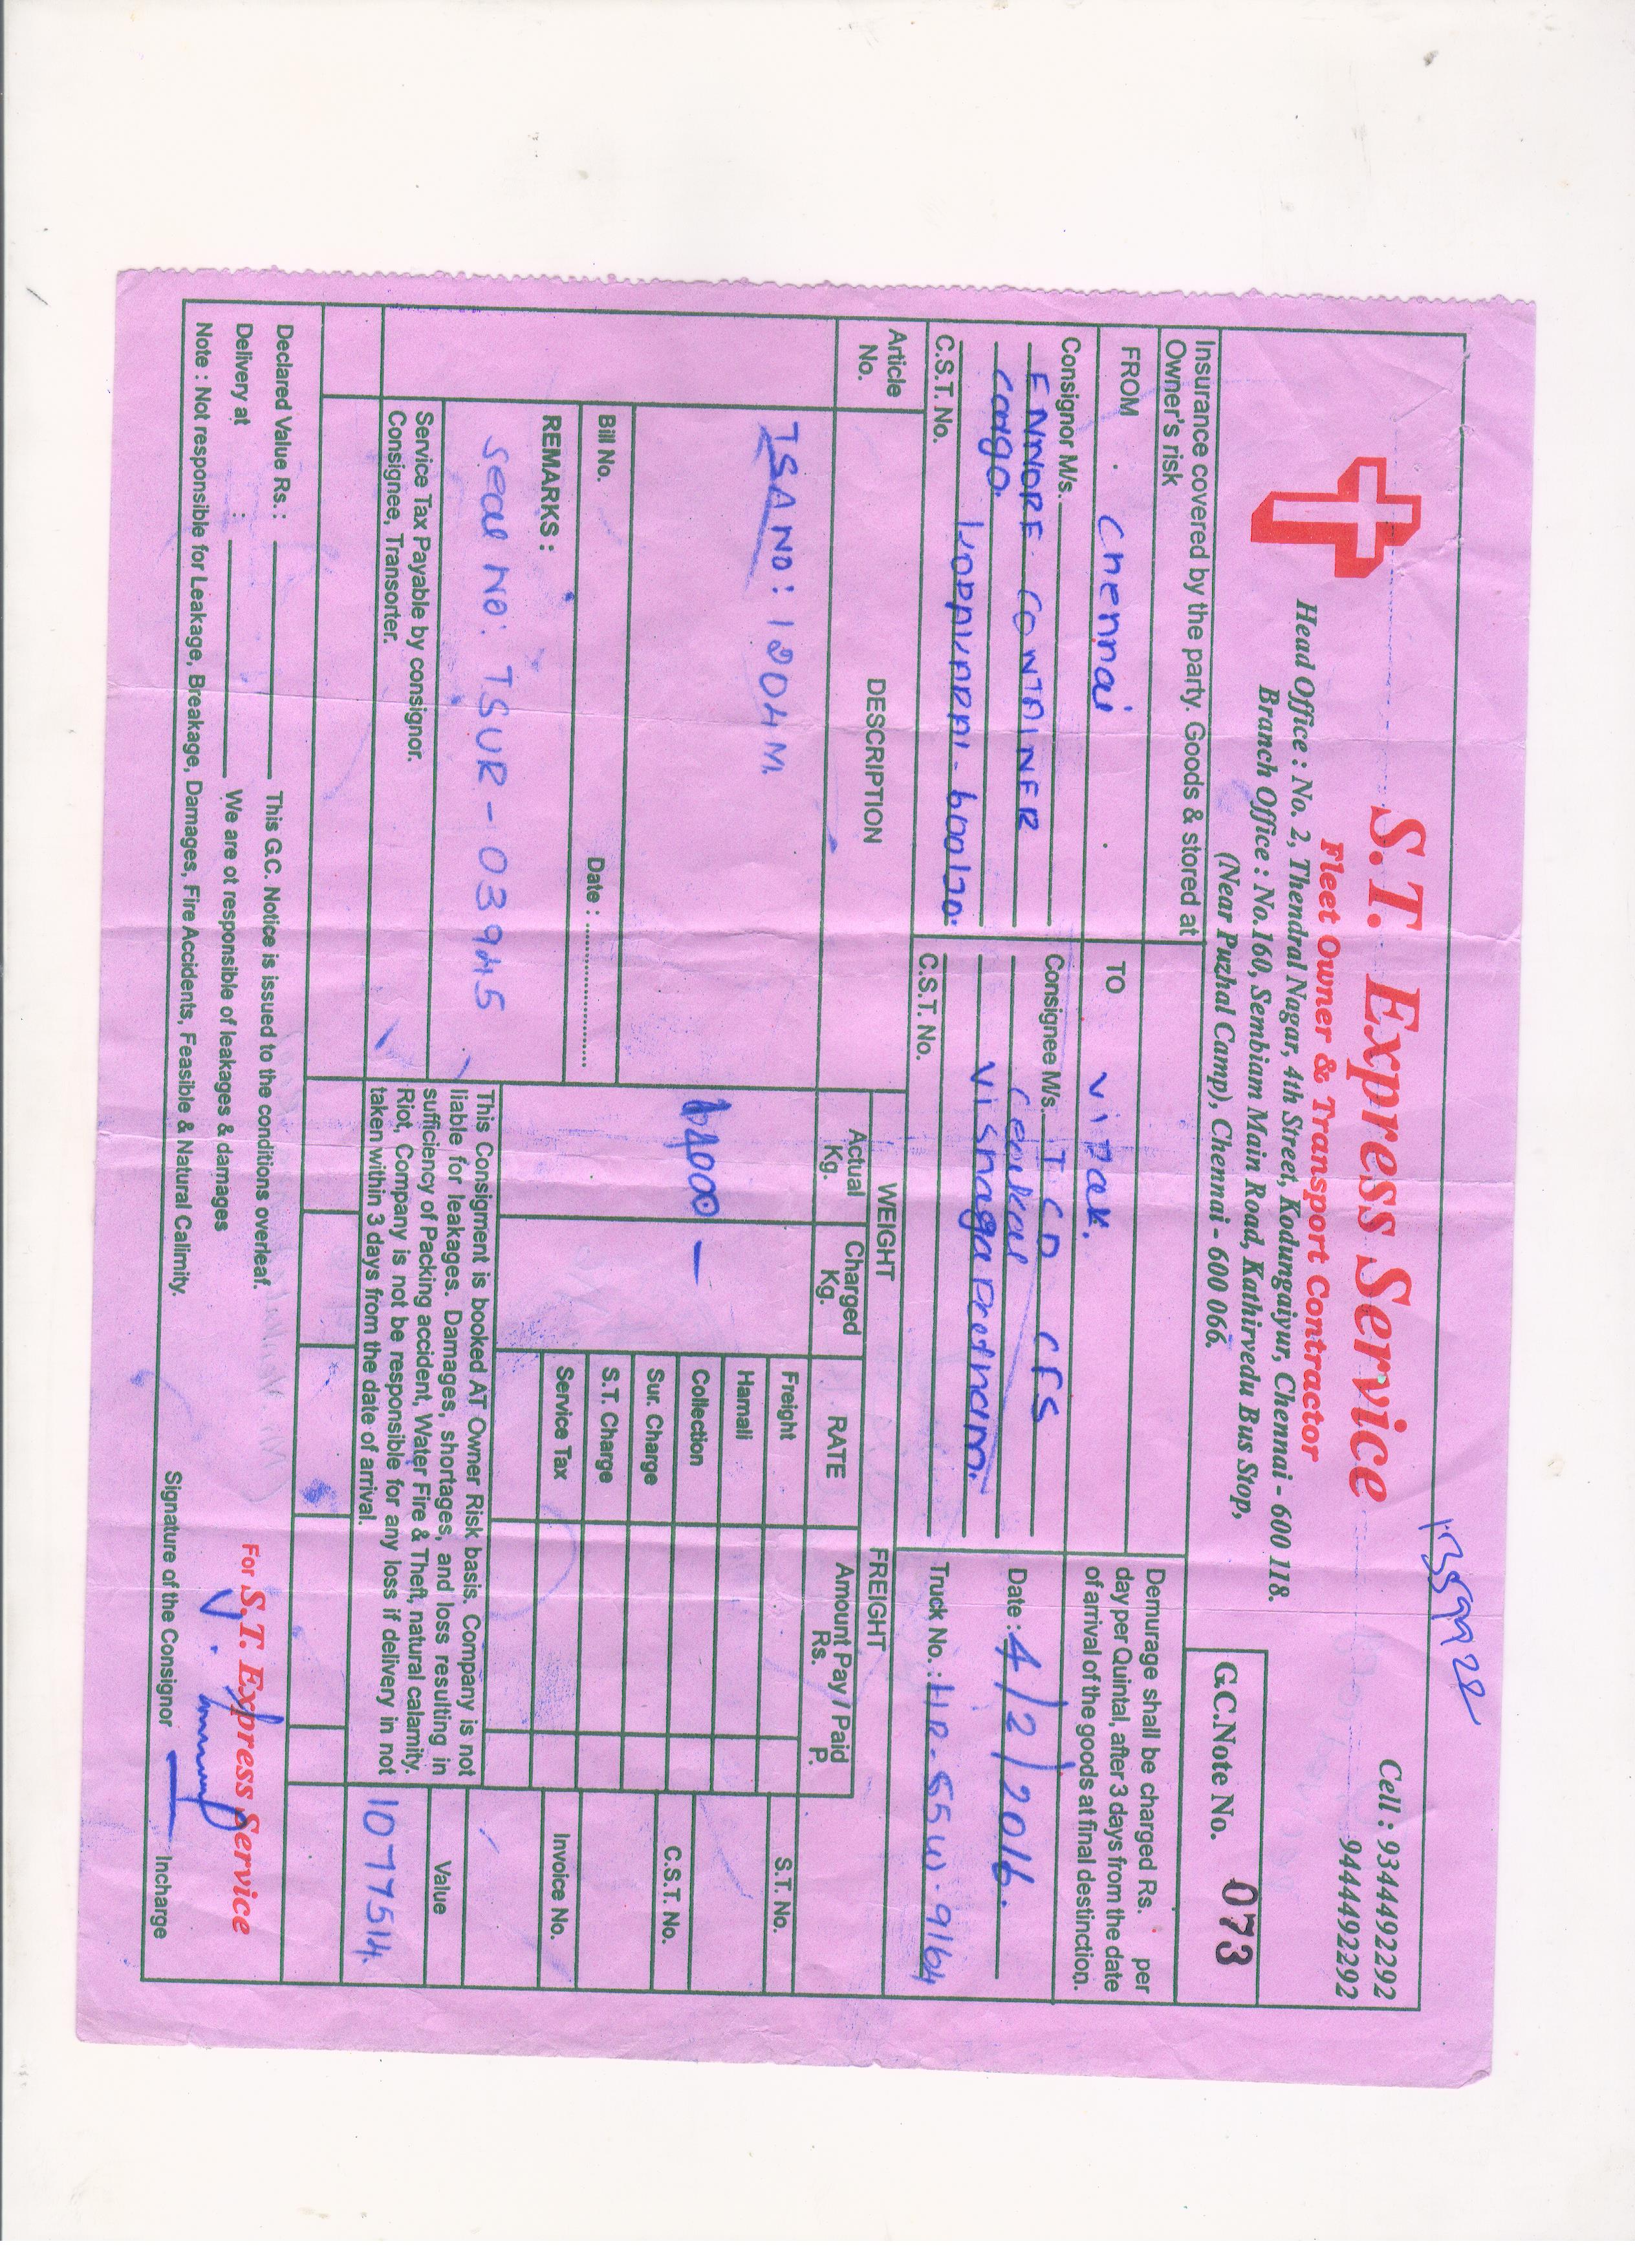 1359922
S.T. Express Service
Fleet Owner & Transport Contractor
Head Office : No. 2, Thendral Nagar, 4th Street, Kodungaiyur, Chennai - 600 118.
Branch Office : No.160, Sembiam Main Road, Kathirvedu Bus Stop,
(Near Puzhal Camp), Chennai - 600 066.
Cell : 9344492292
9444492292
G.C.Note No. 073
Insurance covered by the party. Goods & stored at
Owner's risk
Demurage shall be charged Rs. per
day per Quintal, after 3 days from the date
of arrival of the goods at final destinction.
FROM Chennai
TO
Consignor M/s.
ENNORE CONTAINER
Cargo.
600120.
C.S.T. No.
Consignee M/s. ICD CFS
C.S.T. No.
Date : 4/2/2016.
Truck No. : HR-55W-9164
Article
No.
DESCRIPTION
WEIGHT
Actual
Kg.
Charged
Kg.
FREIGHT
RATE
Amount Pay / Paid
Rs. P.
TSA NO: 1204M.
64000 —
Freight
Hamali
Collection
Sur. Charge
S.T. Charge
Service Tax
S.T. No.
C.S.T. No.
Invoice No.
Value
1077514.
Bill No. Date : ........................
REMARKS :
Seal NO: TSUR - 03945
Service Tax Payable by consignor.
Consignee, Transorter.
This Consigment is booked AT Owner Risk basis. Company is not
liable for leakages. Damages, shortages, and loss resulting in
sufficiency of Packing accident, Water Fire & Theft, natural calamity.
Riot, Company is not be responsible for any loss if delivery in not
taken within 3 days from the date of arrival.
Declared Value Rs. : This G.C. Notice is issued to the conditions overleaf.
Delivery at : We are ot responsible of leakages & damages
Note : Not responsible for Leakage, Breakage, Damages, Fire Accidents, Feasible & Natural Calimity.
For S.T. Express Service
Signature of the Consignor Incharge